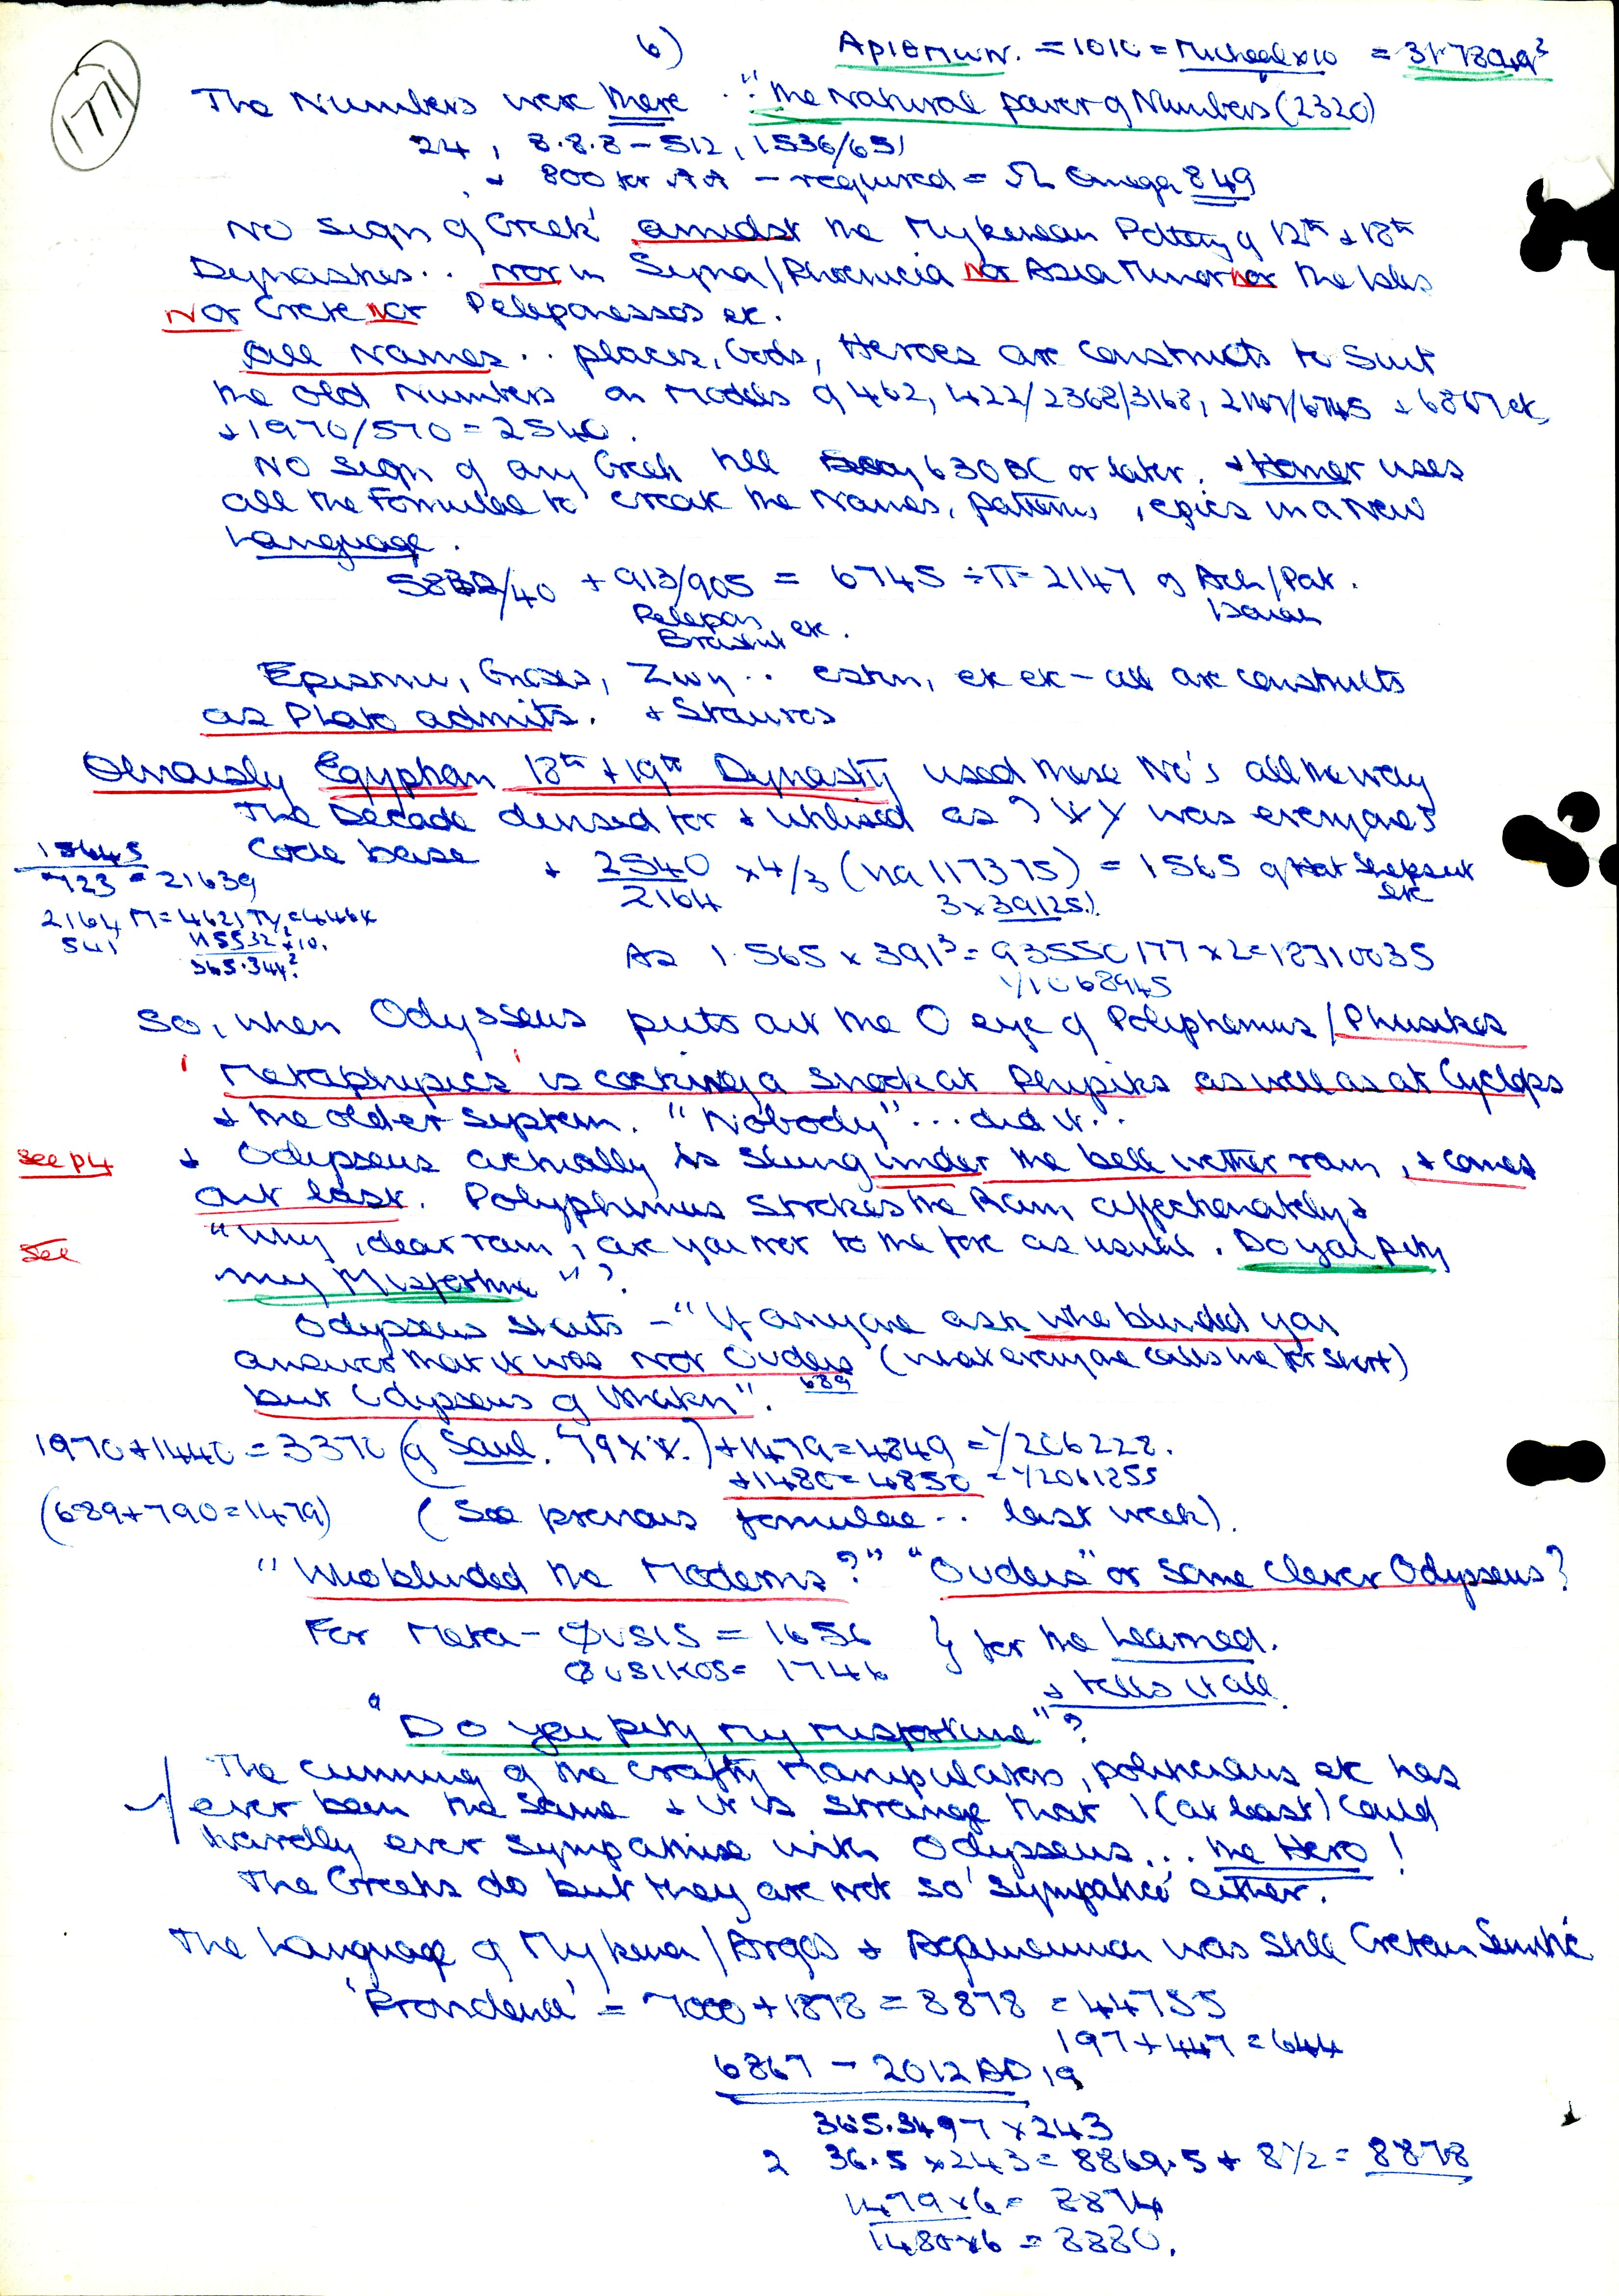 1771
6) ΑΡΙΘΜWN. = 1010 = Micheal x 10 = 31.78049²
The Numbers were there .. "The Natural power of Numbers (2320)
24, 8.8.8 - 512, 1536/651
+ 800 for - required = Ω Omega 849
No sign of 'Greek' amidst the Mykenean Pottery of 12th + 18th
Dynasties .. nor in Syria/Phoenicia Nor Asia Minor nor the Isles
Nor Crete nor Peleponessos etc.
All Names .. places, Gods, Heroes are constructs to suit
the old Numbers on Models of 462, 1422/2368/3168, 2147/6745 + 6867 etc,
+ 1970/570 = 2540.
No sign of any Greek till 630 BC or later. + Homer uses
all the Formulae to create the Names, patterns, epics in a New
Language.
5832/40 + 913/905 = 6745 ÷ π = 2147 of Ach/Pat.
Pelepon etc. Isaiah
Epistmi, Gnosis, Zwη .. estin, etc etc - all are constructs
as Plato admits. + Stauros
Obviously Egyptian 18th + 19th Dynasty used these No's all the way
The Decade devised for + utilised as was everyone's
Code base + 2540/2164 x 4/3 (via 117375) = 1565 of Hat Shepsut etc
3 x 39125.)
723 = 21639
541
365.344²
As 1.565 x 391³ = 93550177 x 2 = 18710035
1/1068945
So, when Odysseus puts out the O eye of Poliphemus / Phusikos
'Metaphysics' is cocking a snook at Physiks as well as at Cyclops
+ the older system. "Nobody" ... did it..
see p4 + Odysseus actually is slung under the bell wether ram, + comes
out last. Polyphemus strokes the Ram affectionately +
see "Why, dear ram, are you not to the fore as usual. Do you pity
my Misfortune"?
Odysseus shouts - "If anyone asks who blinded you
answer that it was not Oudeis (what everyone calls me for short)
689
but Odysseus of Ithaka".
1970 + 1440 = 3370 (of Saul. 79 x x.) + 1479 = 4849 = 1/206228.
+ 1480 = 4850 = 1/2061855
(689 + 790 = 1479) (See previous formulae .. last week).
"Who blinded the Moderns?" "Oudeis" or some clever Odysseus?
For Meta - ΦUSIS = 1656 } for the Learned.
ΦUSIKOS = 1746
+ tells it all.
"Do you pity my misfortune"?
The cunning of the crafty Manipulators, politicians etc has
ever been the same + it is strange that I (at least) could
hardly ever sympathise with Odysseus... the Hero!
The Greeks do but they are not so 'sympathic' either.
The Language of Mykenai/Argos + Agamemnon was still Cretan Semitic
'Providence' = 7000 + 1878 = 8878 = 44755
197 + 447 = 644
6867 - 2012 AD 19
365.3497 x 243
2 36.5 x 243 = 8869.5 + 8½ = 8878
1479 x 6 = 8874
1480 x 6 = 8880.